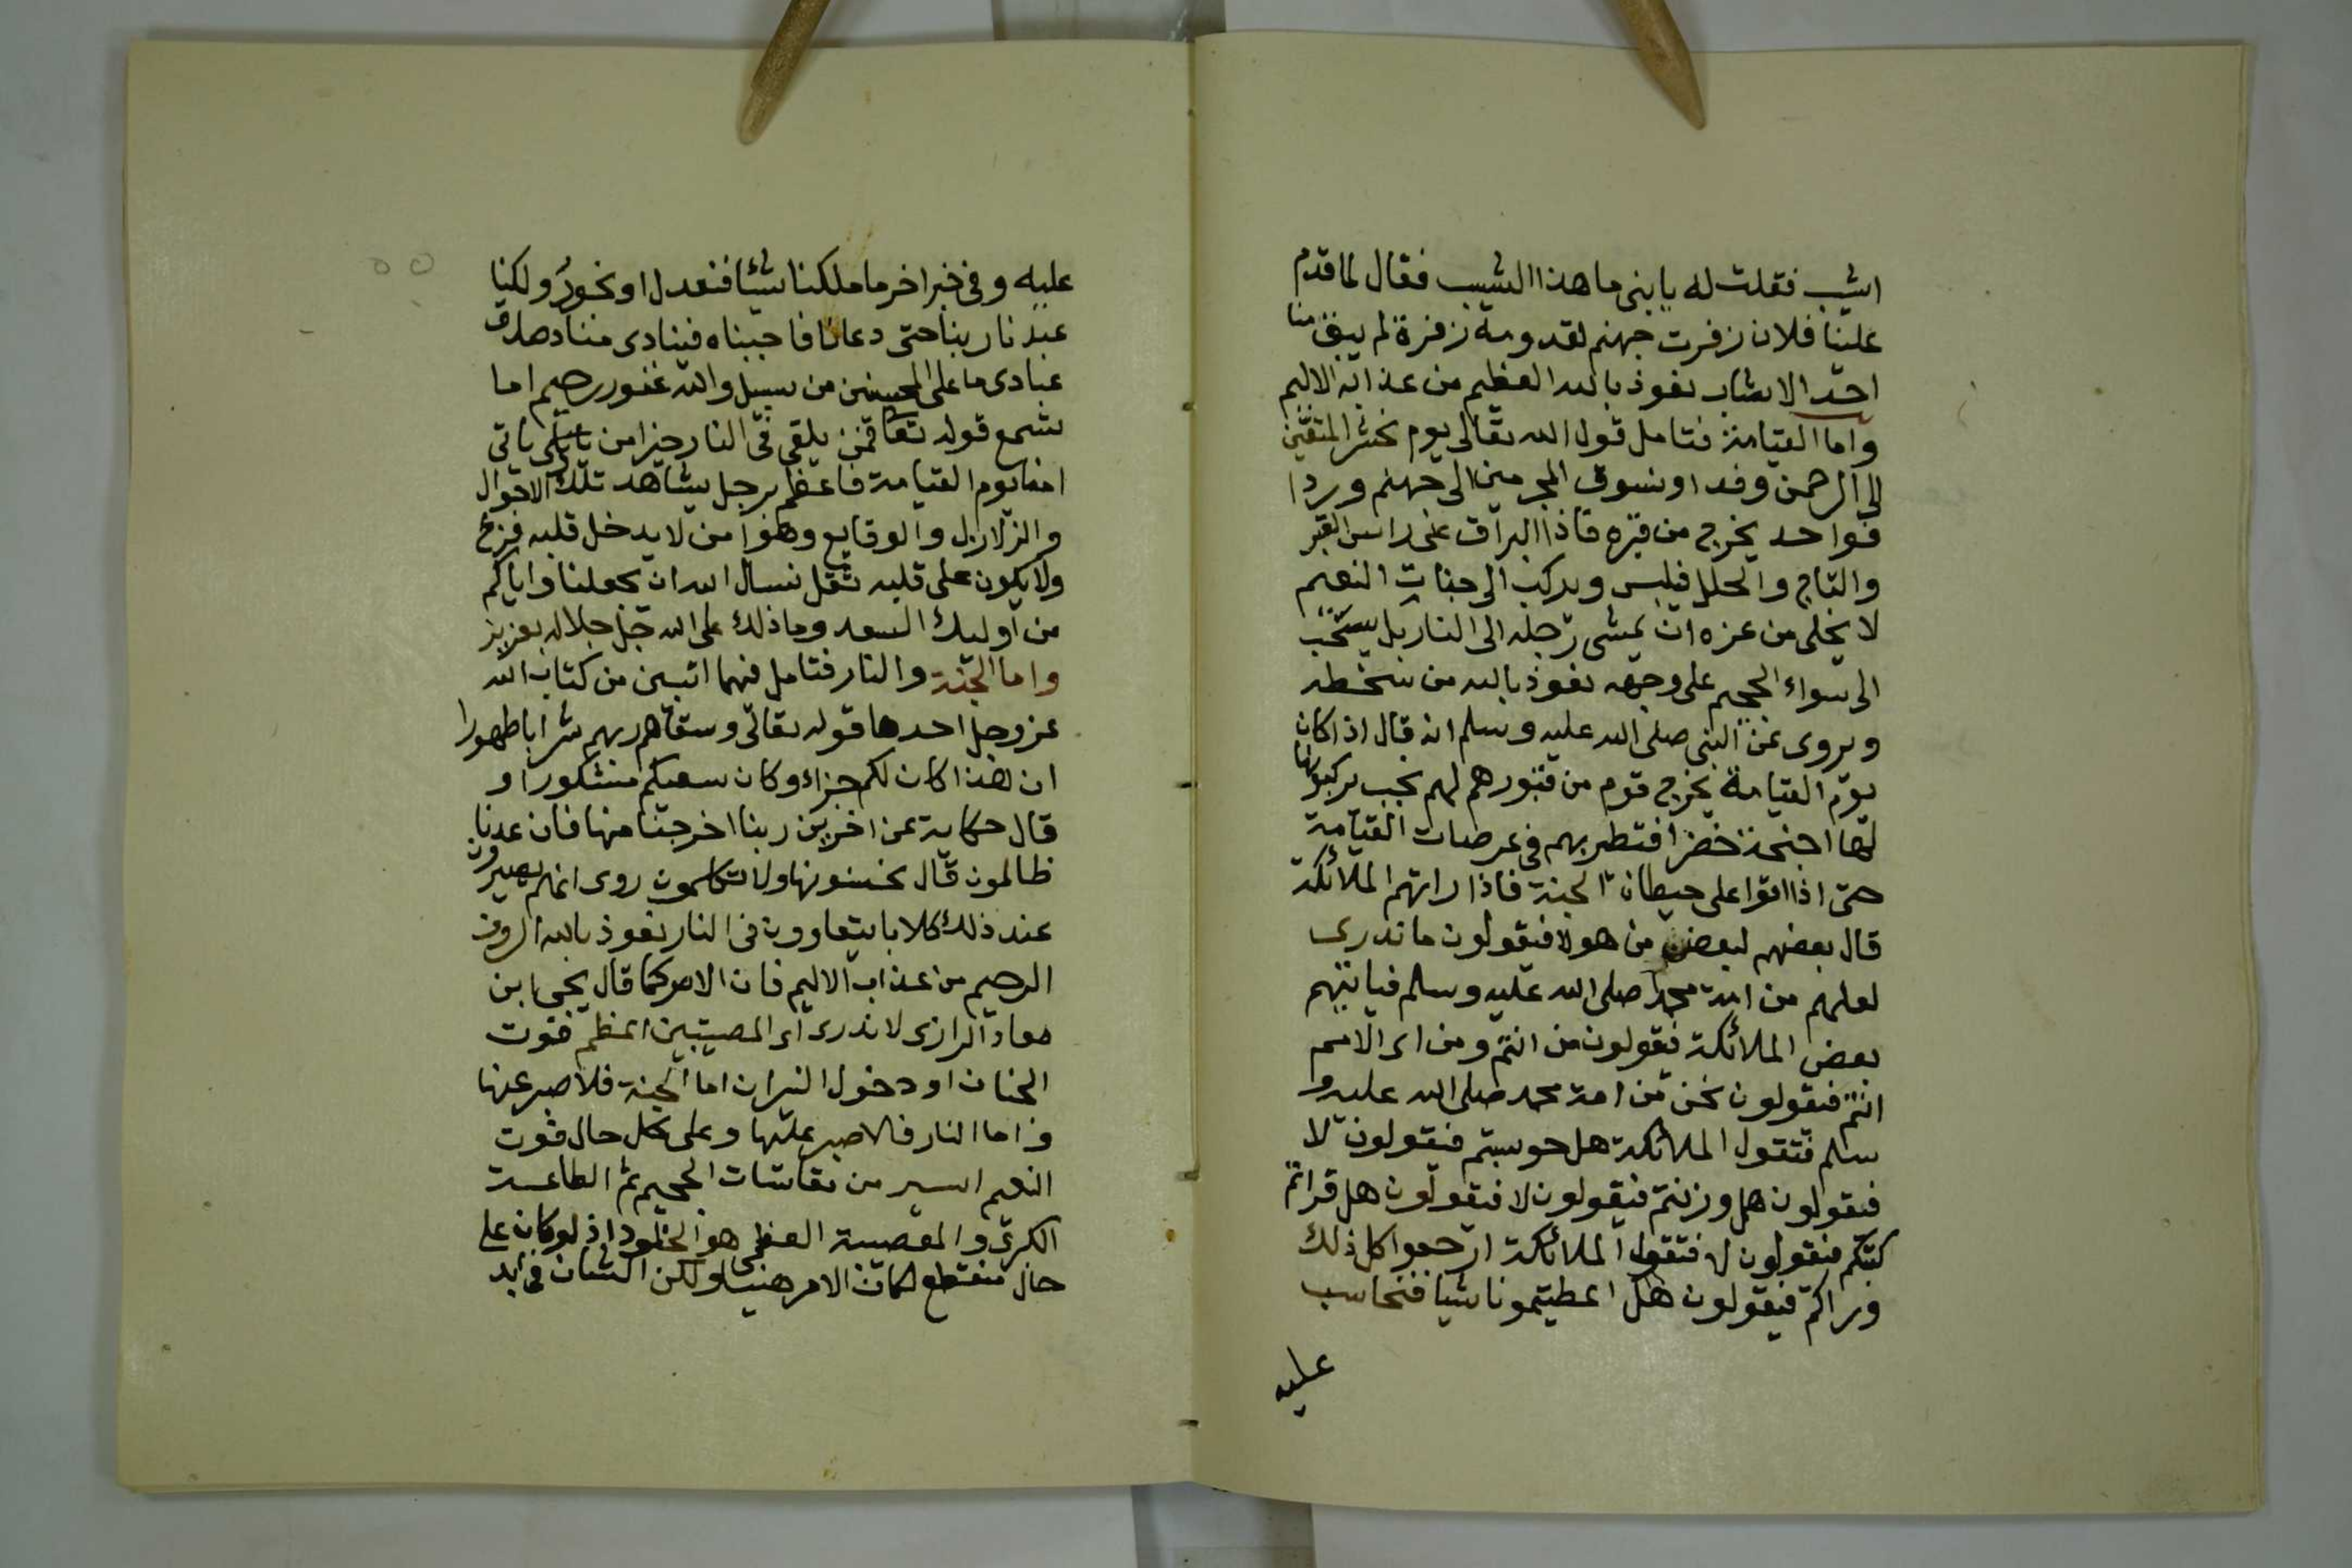 اشيب فقلت له يا بنى ما هذا الشيب فقال لما قدم
علينا فلان زفرت جهنم لقدومه زفرة لم يبق منا
احد الا شاب نعوذ بالله العظيم من عذابه الاليم
واما القيامة فتامل قول الله تعالى يوم نحشر المتقين
الى الرحمن وفدا ونسوق المجرمين الى جهنم وردا
فواحد يخرج من قبره فاذا البراق على راس القبر
والتاج والحلل فيلبس ويركب الى جنات النعيم
لا يخلى من عزه ان يمشى رجله الى النار بل يسحب
الى سواء الجحيم على وجهه نعوذ بالله من سخطه
ويروى عن النبى صلى الله عليه وسلم انه قال اذا كان
يوم القيامة يخرج قوم من قبورهم لهم نجب يركبونها
لها اجنحة خضر افتطير بهم فى عرصات القيامة
حتى اذا اتوا على حيطان الجنة فاذا راتهم الملائكة
قال بعضهم لبعض من هولا فيقولون ما ندرى
لعلهم من امة محمد صلى الله عليه وسلم فياتيهم
بعض الملائكة فيقولون من انتم ومن اى الامم
انتم فيقولون نحن من امة محمد صلى الله عليه و
سلم فتقول الملائكة هل حوسبتم فيقولون لا
فيقولون هل وزنتم فيقولون لا فيقولون هل قراتم
كتبكم فيقولون لا فتقول الملائكة ارجعوا كل ذلك
وراكم فيقولون هل اعطيتمونا شيا فنحاسب
عليه
عليه وفى خبر اخر ما ملكنا شئا فنعدل او نجور ولكنا
عبدنا ربنا حتى دعانا فاجبناه فينادى مناد صدق
عبادى ما على المحسنين من سبيل والله غفور رحيم اما
تسمع قوله تعا افمن يلقى فى النار خير امن ياتى
امنا يوم القيامة فاعظم برجل يشاهد تلك الاحوال
والزلازل والوقايع وهو امن لا يدخل قلبه فزع
ولا يكون على قلبه ثقل نسال الله ان يجعلنا واياكم
من اوليك السعد وما ذلك على الله جل جلاله بعزيز
واما الجنة والنار فتامل فيهما اثبين من كتاب الله
عز وجل احدها قوله تعالى وسقاهم ربهم شرابا طهورا
ان هذا كان لكم جزاء وكان سعيكم مشكورا و
قال حكاية عن اخرين ربنا اخرجنا منها فان عدنا
ظالمون قال اخسئو فيها ولا تكلمون روى انهم يصيرون
عند ذلك كلابا يتعاوون فى النار نعوذ بالله الروف
الرحيم من عذاب الاليم فان الامر كما قال يحيى ابن
معاذ الرازى لا ندرى اى المصيبتين اعظم فوت
الجنان او دخول النيران اما الجنة فلا صبر عنها
واما النار فلا صبر عليها وعلى كل حال فوت
النعيم ايسير من مقاسات الجحيم ثم الطامة
الكبرى والمصيبة العظمى هو الخلود اذ لو كان على
حال منقطع لكان الامر هينا ولكن الشان فى ابد